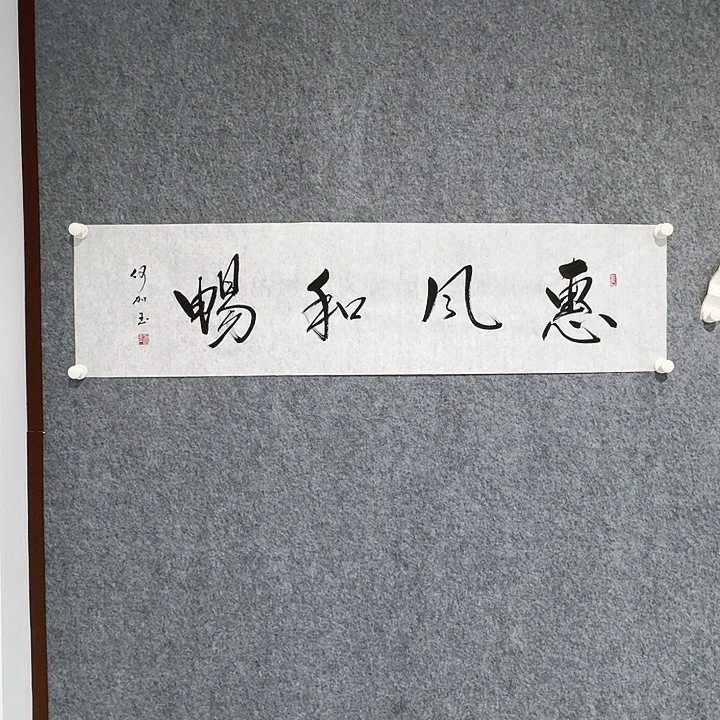 惠风和畅
何加玉